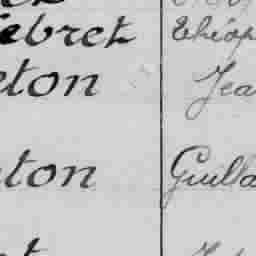 ebret Théop
eton Jea
ton Guilla